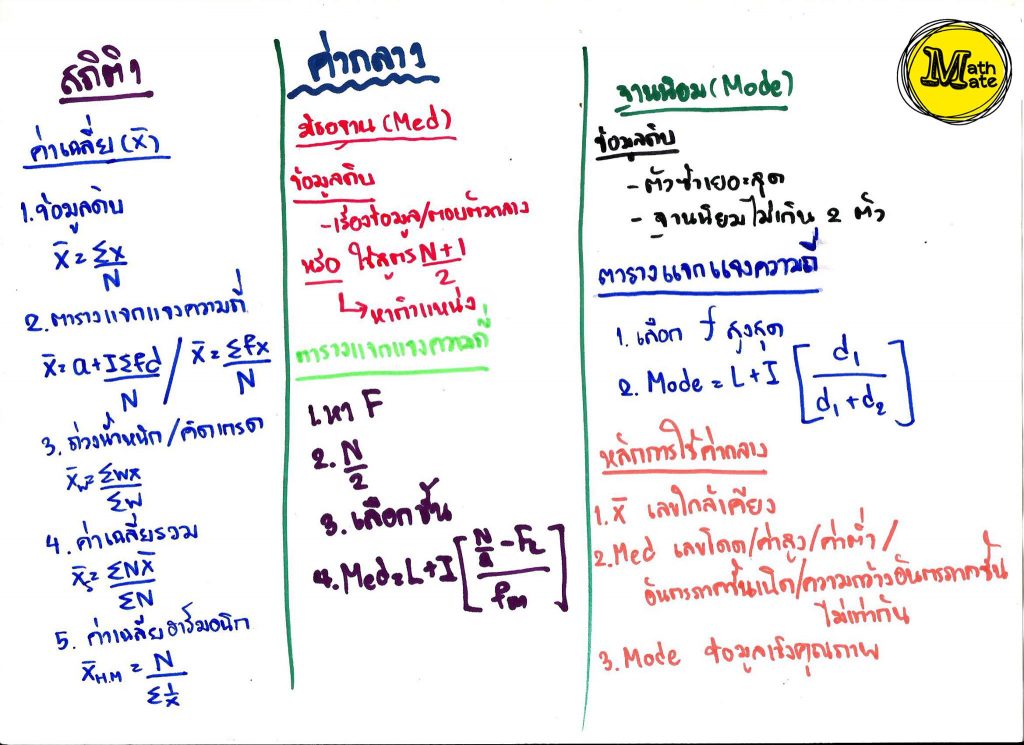 สถิติ 1
ค่าเฉลี่ย (x̄)
1. ข้อมูลดิบ
x̄ = Σx/N
2. ตารางแจกแจงความถี่
x̄ = a + IΣfd/N / x̄ = Σfx/N
3. ถ่วงน้ำหนัก/คิดเกรด
x̄w = Σwx/Σw
4. ค่าเฉลี่ยรวม
x̄s = ΣNx̄/ΣN
5. ค่าเฉลี่ยฮาร์โมอนิก
x̄H.M = N/Σ(1/x)
ค่ากลาง
มัธยฐาน (Med)
ข้อมูลดิบ
- เรียงข้อมูล/ตอบตัวกลาง
หรือ ใช้สูตร N+1/2
↳ หาตำแหน่ง
ตารางแจกแจงความถี่
1. หา F
2. N/2
3. เลือกชั้น
4. Med = L + I [(N/2 - FL)/fm]
ฐานนิยม (Mode)
ข้อมูลดิบ
- ตัวซ้ำเยอะสุด
- ฐานนิยมไม่เกิน 2 ตัว
ตารางแจกแจงความถี่
1. เลือก f สูงสุด
2. Mode = L + I [d₁/(d₁+d₂)]
หลักการใช้ค่ากลาง
1. x̄ เลขใกล้เคียง
2. Med เลขโดด/ค่าสูง/ค่าต่ำ/
อันตรภาคชั้นเปิด/ความกว้างอันตรภาคชั้น
ไม่เท่ากัน
3. Mode ข้อมูลเชิงคุณภาพ
Math
Mate